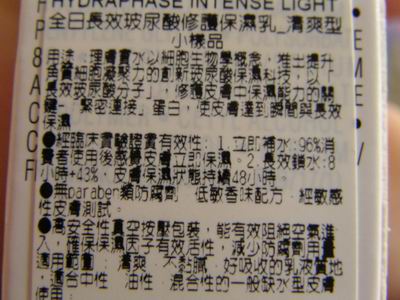 HYDRAPHASE INTENSE LIGHT
全日長效玻尿酸修護保濕乳_清爽型
小樣品
用途：理膚寶水以細胞生物學概念，推出提升
角質細胞凝聚力的創新玻尿酸保濕科技，以「
長效玻尿酸分子」，修護皮膚中保濕能力的關
鍵-「緊密連接」蛋白，使皮膚達到瞬間與長效
保濕
●經臨床實驗證實有效性：1.立即補水：96%消
費者使用後感覺皮膚立即保濕。2.長效鎖水：8
小時+43%，皮膚保濕狀態持續48小時。
●無paraben類防腐劑 低敏香味配方 經敏感
性皮膚測試。
●高安全性真空按壓包裝，能有效阻絕空氣進
入，確保保濕因子有效活性，減少防腐劑用量
適用範圍：清爽、不黏膩、好吸收的乳液質地
適合中性 油性 混合性的一般缺水型皮膚
使用